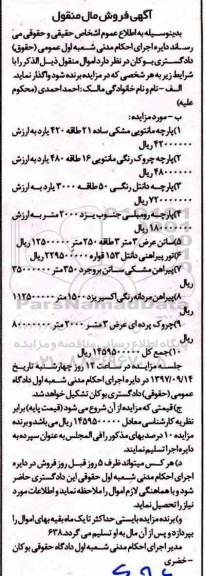 آگهی فروش مال منقول
بدینوسیله به اطلاع عموم اشخاص حقیقی و حقوقی می
رساند دایره اجرای احکام مدنی شعبه اول عمومی (حقوق)
دادگستری بوکان در نظر دارد اموال منقول ذیل الذکر را با
شرایط زیر به هر شخصی که در مزایده برنده شود واگذار نماید.
الف - نام و نام خانوادگی مالک : احمد احمدی (محکوم
علیه)
ب - مورد مزایده :
۱) پارچه مانتویی مشکی ساده ۲۱ طاقه ۴۲۰ یارد به ارزش
۴۲۰۰۰۰۰۰ ریال
۲) پارچه چروک رنگی مانتویی ۱۶ طاقه ۴۸۰ یارد به ارزش
۴۸۰۰۰۰۰۰ ریال
۳) پارچه دانتل رنگی ۵۰ طاقه ۳۰۰۰ یارد به ارزش
ریال
۴) پارچه رومبلی جنوب یزد ۲۰۰۰ متر به ارزش
ریال
۵) ساتن عرض ۳ متر ۳ طاقه ۲۵۰ متر ۱۲۵۰۰۰۰۰ ریال
۶) تور پیراهنی دانتل ۱۵۳ قواره ۲۲۹۵۰۰۰۰ ریال
۷) پیراهن مشکی ساتن بروجرد ۳۵۰ متر ۳۵۰۰۰۰۰۰
ریال
۸) پیراهن مردانه رنگی اکسیر یزد ۱۵۰۰ متر ۱۱۲۵۰۰۰۰۰
ریال
۹) چروک پرده ای عرض ۳ متر ۲۰۰۰ متر ۸۰۰۰۰۰۰۰
ریال
۱۰) جمع کل ۱۴۵۹۵۰۰۰۰۰ ریال
جلسه مزایده در ساعت ۱۲ روز چهارشنبه تاریخ
۱۳۹۷/۰۹/۱۴ در دایره اجرای احکام مدنی شعبه اول دادگاه
عمومی (حقوقی) دادگستری بوکان تشکیل خواهد شد.
ج) قیمتی که مزایده از آن شروع می شود (قیمت پایه) برابر
نظریه کارشناسی معادل ۱۴۵۹۵۰۰۰۰۰ ریال می باشد و برنده
مزایده ۱۰ درصد بهای مذکور را فی المجلس به عنوان سپرده به
دایره اجرا تسلیم نمایند.
د) هر کس میتواند ظرف ۵ روز قبل روز فروش در دایره
اجرای احکام مدنی شعبه اول حقوقی این دادگستری حاضر
شود و با هماهنگی لازم اموال را ملاحظه نماید و اطلاعات مورد
نیاز را تحصیل نماید.
و) برنده مزایده بایستی حداکثر تا یک ماه بقیه بهای اموال را
بپردازد و پس از آن مال به او تسلیم می گردد. ۶۳۸
مدیر اجرای احکام مدنی شعبه اول دادگاه حقوقی بوکان
- خضری